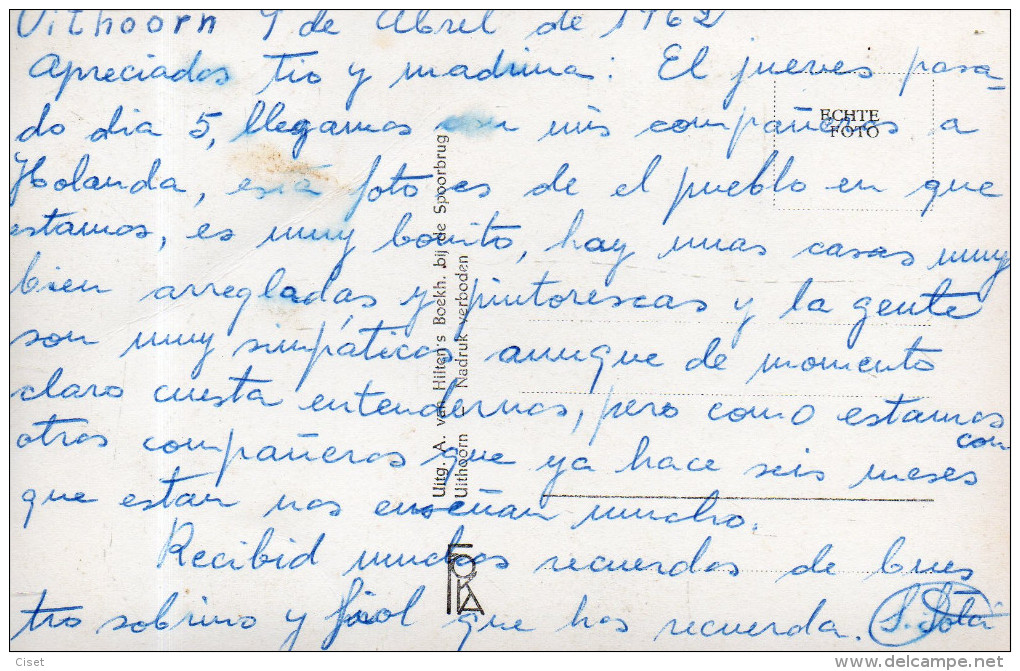 Uithoorn 9 de Abril de 1962
Apreciados tio y madrina: El jueves pasa-
do dia 5, llegamos con mis compañeros a
Holanda, esta foto es de el pueblo en que
estamos, es muy bonito, hay unas casas muy
bien arregladas y pintorescas y la gente
son muy simpáticos, aunque de momento
claro cuesta entendernos, pero como estamos
con
otros compañeros que ya hace seis meses
que estan nos enseñan mucho.
Recibid muchos recuerdos de vues
tro sobrino y fiol que hos recuerda. S. Sotá
ECHTE
FOTO
Uitg. A. van Hilten's Boekh. bij de Spoorbrug
Uithoorn — Nadruk verboden
FOKA
Ciset
http://www.delcampe.net